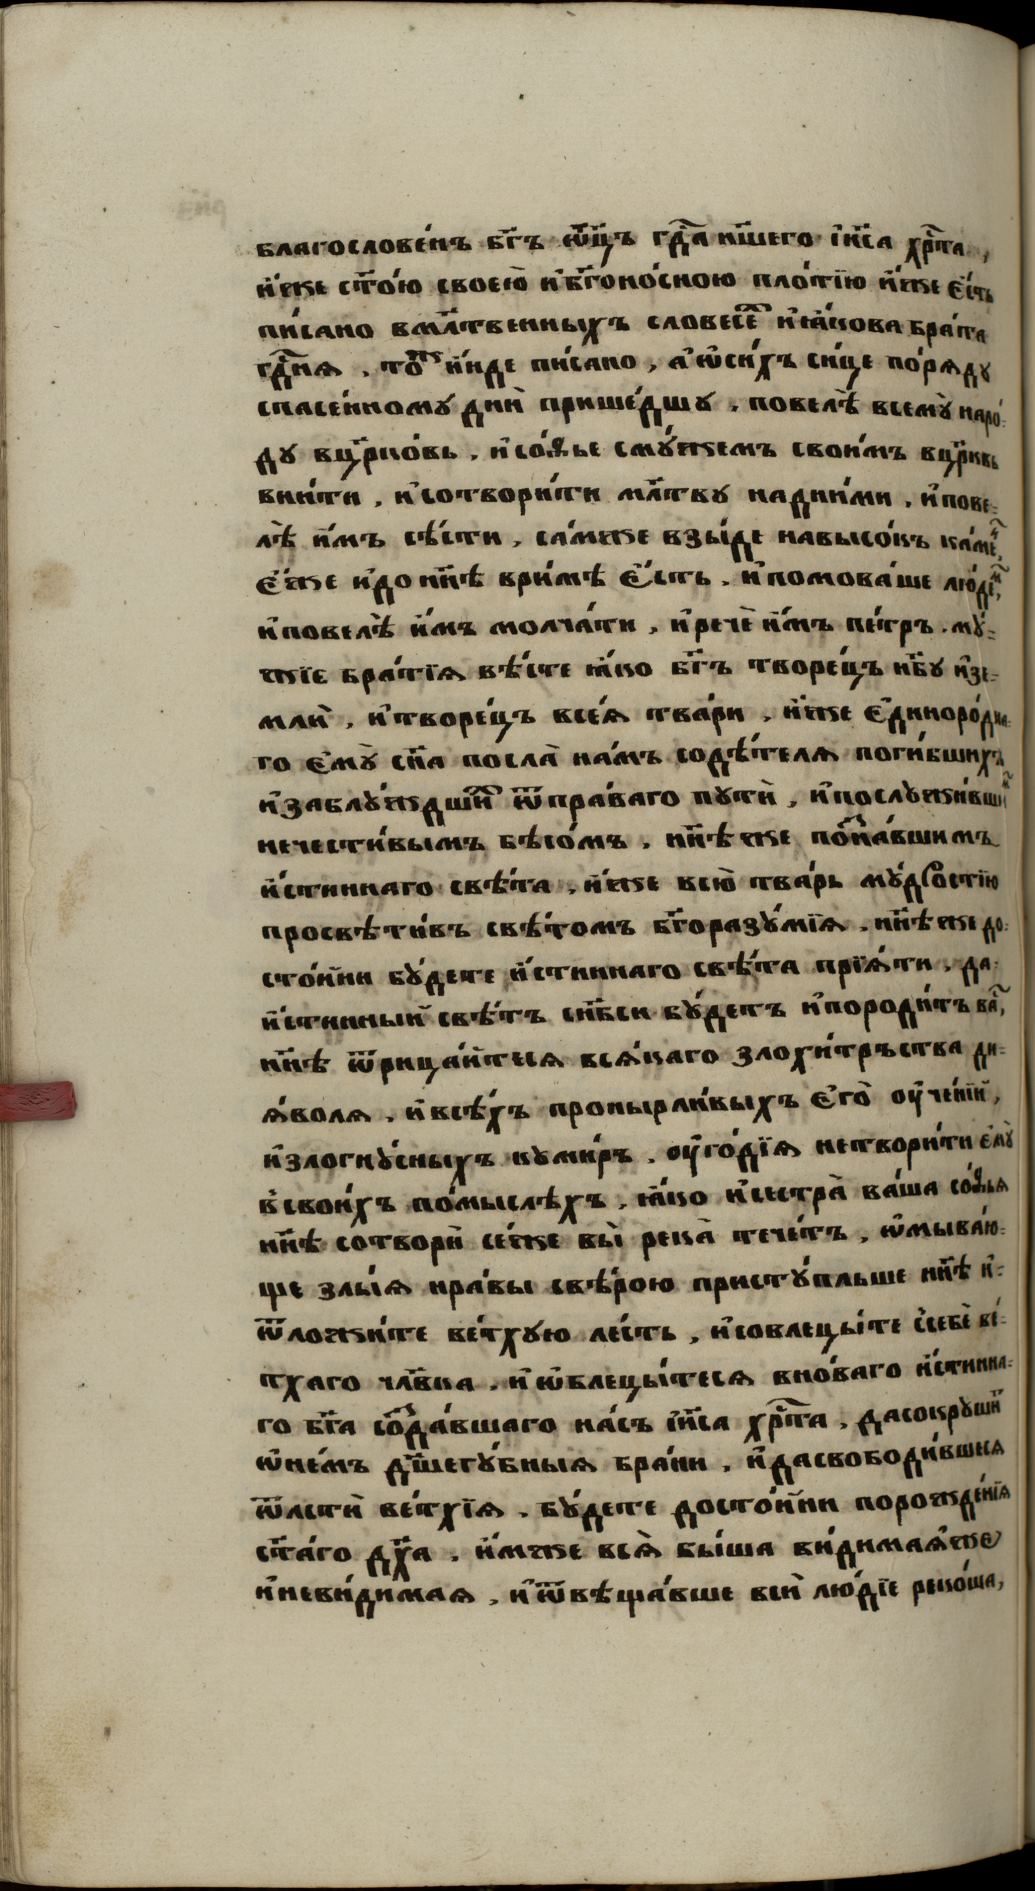 благослове́нъ бг҃ъ ѿц҃ъ гдⷭ҇а нш҃его і҆и҃са хрⷭ҇та,
и҆́же ст҃о́ю свое́ю и҆бг҃оно́сною пло́тїю и҆́же є҆́сть
пи́сано вмл҃твенныхъ словесе̑ и҆ꙗ҆́кова бра́та
гдⷭ҇нѧ . то́ж и҆́нде пи́сано , а҆ѡ҆си́хъ си́це по́рѧду
спасе́нному дни̑ прише́дшу . повелѣ̀ всему̀ наро́-
ду вцр҃ко́вь . и҆со́фье сму́жемъ свои́мъ вцр҃ковь
вни́ти , и҆сотвори́ти мл҃тву надни́ми , и҆пове-
лѣ̀ и҆̀мъ сѣ́сти , са́мже взы́де навысо́къ ка́мень,
є҆́же и҆до нн҃ѣ ври́мѣ є҆́сть . и҆помова́ше лю́дем,
и҆повелѣ̀ и҆̀мъ молча́ти , и҆речѐ и҆̀мъ пе́тръ . му́-
жїе бра́тїѧ вѣ́сте ꙗ҆́ко бг҃ъ творе́цъ нб҃у и҆зе-
мли̑ , и҆творе́цъ всеѧ̀ тва́ри , и҆́же є҆диноро́дна-
го є҆му̀ сн҃а посла̀ на́мъ содѣ́телѧ поги́бшихъ
и҆заблу́ждши́х ѿпра́ваго пути̑ , и҆послужи́вших
нечести́вымъ бѣсо́мъ . нн҃ѣже позна́вшимъ
и҆́стиннаго свѣ́та , и҆́же всю̀ тва́рь му́дростїю
просвѣти́въ свѣ́томъ бг҃оразу́мїѧ . нн҃ѣже до-
сто́йни бу́дете и҆́стиннаго свѣ́та прїѧ́ти . да
и҆́стинный свѣ́тъ сн҃бси бу́детъ и҆породи́тъ ва́с,
нн҃ѣ ѿрица́йтесѧ всѧ́каго злохи́тръства ди-
ѧ́волѧ . и҆всѣ́хъ пронырли́выхъ є҆го̀ оу҆че́нїй,
и҆злогну́сныхъ куми́ръ . оу҆го́дїѧ нетвори́ти є҆му̀
в̾свои́хъ по́мыслѣхъ . ꙗ҆́ко и҆сестра̀ ва́ша со́фьѧ
нн҃ѣ сотвори̑ се́же вы̀ река̀ тече́тъ , ѡ҆мыва́ю-
ще злы́ѧ нра́вы свѣ́рою присту́пльше нн҃ѣ и҆-
ѿложи́те ве́тхую ле́сть , и҆совлецы́те с̾себѐ ве́-
тхаго чл҃вка . и҆ѡ҆блецы́тесѧ вно́ваго и҆́стинна-
го бг҃а созда́вшаго на́съ і҆и҃са хрⷭ҇та . дасокруши́м
ѡ҆не́мъ дш҃егу́бныѧ бра́ни . и҆дасвободи́вшисѧ
ѿлсти̑ ве́тхїѧ . бу́дете досто́йни порожде́нїѧ
ст҃а́го дх҃а . и҆́мже всѧ̀ бы́ша ви́димаѧже
и҆неви́димаѧ , и҆ѿвѣща́вше вси̑ лю́дїе реко́ша,